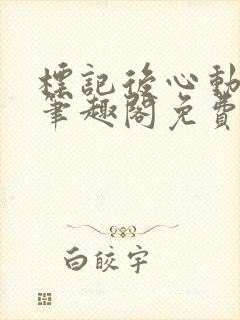 標記後心動
筆趣閣免費
白皎宇